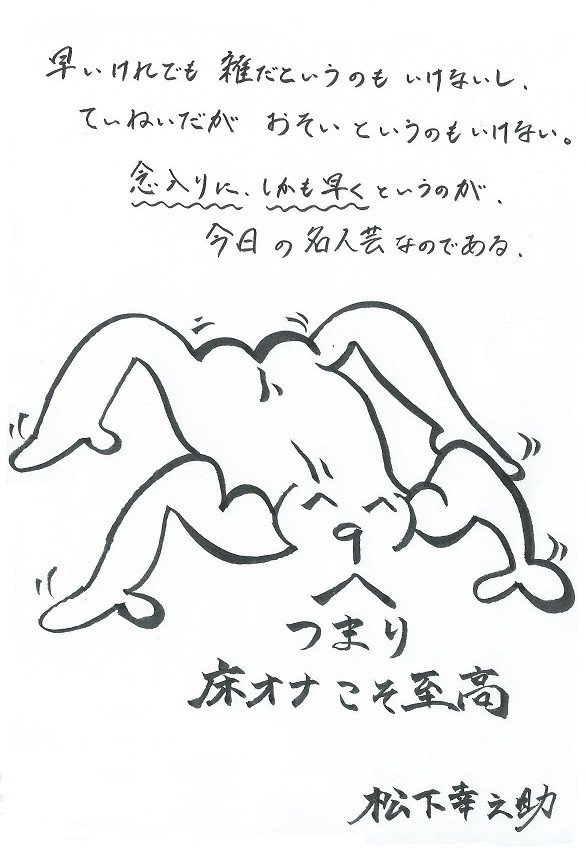 早いけれども 雑だというのもいけないし、
ていねいだが おそいというのもいけない。
念入りに、しかも早くというのが、
今日の名人芸なのである。
つまり
床オナこそ至高
松下幸之助